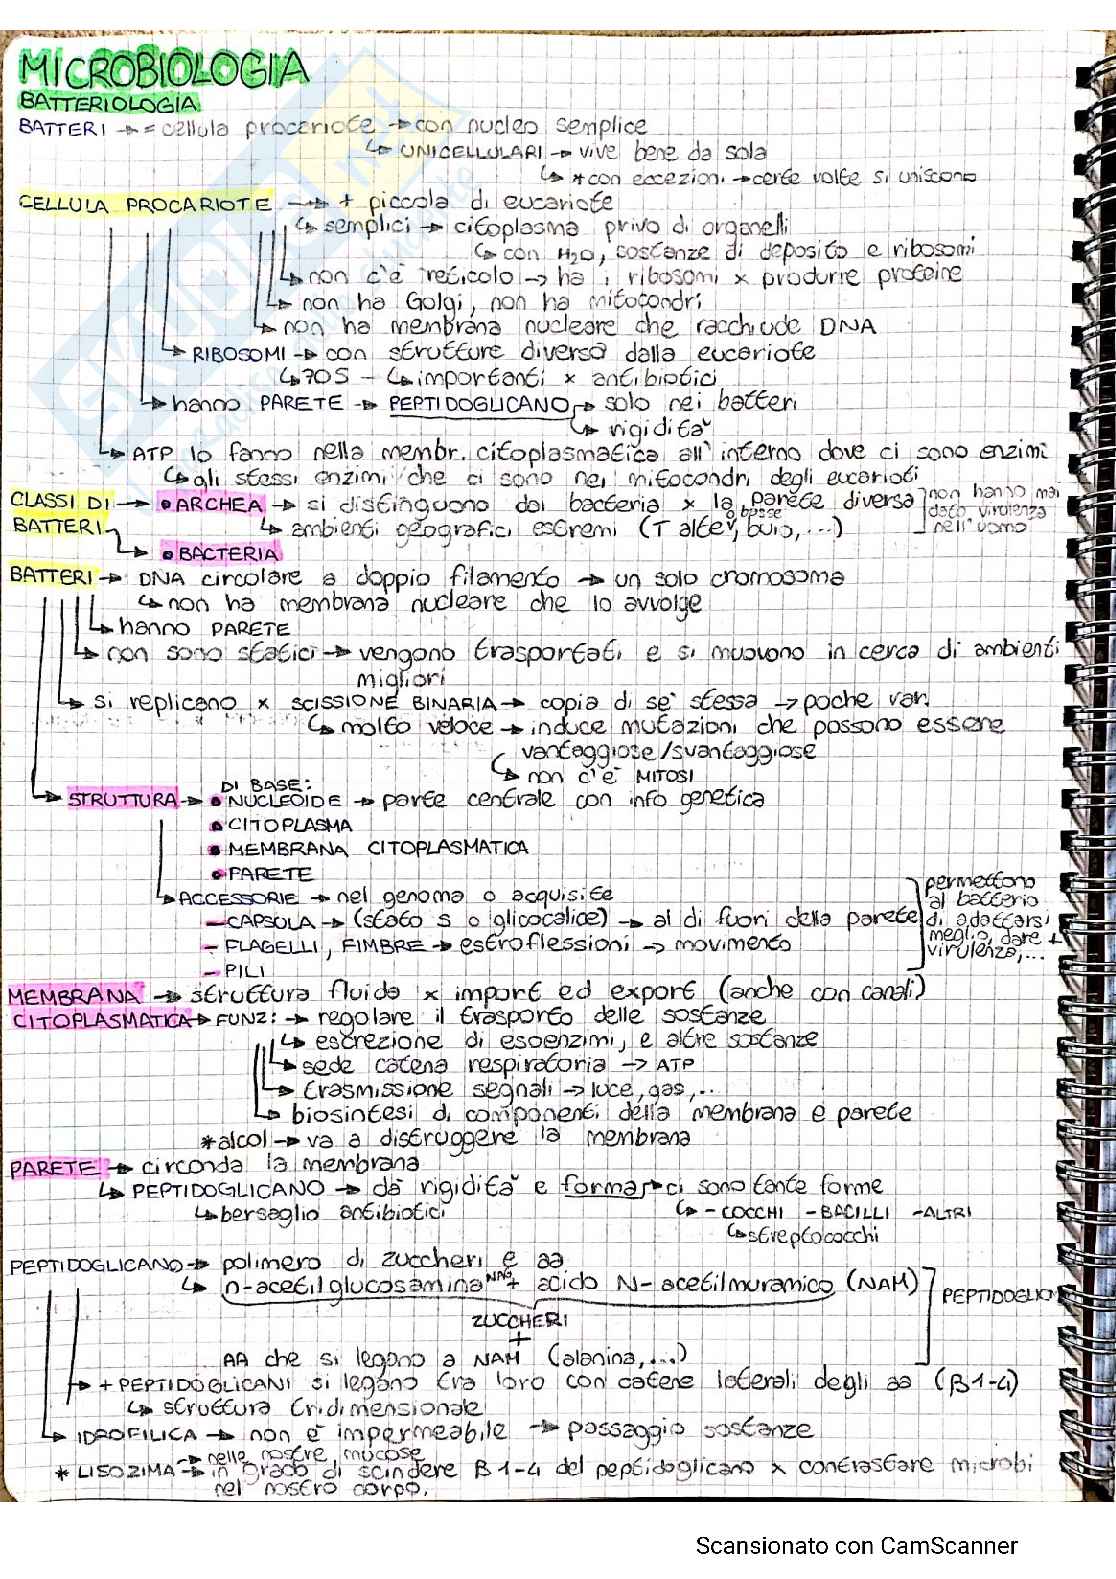 MICROBIOLOGIA
BATTERIOLOGIA
BATTERI → = cellula procariote → con nucleo semplice
↳ UNICELLULARI → vive bene da sola
↳ *con eccezioni → certe volte si uniscono
CELLULA PROCARIOTE → + piccola di eucariote
↳ semplici → citoplasma privo di organelli
↳ con H2O, sostanze di deposito e ribosomi
↳ non c'è reticolo → ha i ribosomi x produrre proteine
↳ non ha Golgi, non ha mitocondri
↳ non ha membrana nucleare che racchiude DNA
↳ RIBOSOMI → con strutture diversa dalla eucariote
↳ 70S - ↳ importanti x antibiotici
↳ hanno PARETE → PEPTIDOGLICANO → solo nei batteri
↳ rigidità
↳ ATP lo fanno nella membr. citoplasmatica all'interno dove ci sono enzimi
↳ gli stessi enzimi che ci sono nei mitocondri degli eucarioti
CLASSI DI BATTERI → • ARCHEA → si distinguono dai bacteria x la parete diversa ] non hanno mai dato virulenza nell'uomo
↳ ambienti geografici estremi (T alte, o basse, buio, ...)
↳ • BACTERIA
BATTERI → DNA circolare a doppio filamento → un solo cromosoma
↳ non ha membrana nucleare che lo avvolge
↳ hanno PARETE
↳ non sono statici → vengono trasportati e si muovono in cerca di ambienti
migliori
↳ si replicano x SCISSIONE BINARIA → copia di se' stessa → poche var.
↳ molto veloce → induce mutazioni che possono essere
vantaggiose/svantaggiose
↳ non c'è MITOSI
DI BASE:
↳ STRUTTURA → • NUCLEOIDE → parte centrale con info genetica
• CITOPLASMA
• MEMBRANA CITOPLASMATICA
• PARETE
↳ ACCESSORIE → nel genoma o acquisite
- CAPSULA → (stato S o glicocalice) → al di fuori della parete
- FLAGELLI, FIMBRE → estroflessioni → movimento
- PILI
] permettono al batterio di adattarsi meglio, dare + virulenza, ...
MEMBRANA CITOPLASMATICA → struttura fluida x import ed export (anche con canali)
→ FUNZ: → regolare il trasporto delle sostanze
↳ escrezione di esoenzimi, e altre sostanze
↳ sede catena respiratoria → ATP
↳ trasmissione segnali → luce, gas, ..
↳ biosintesi di componenti della membrana e parete
*alcol → va a distruggere la membrana
PARETE → circonda la membrana
↳ PEPTIDOGLICANO → dà rigidità e forma → ci sono tante forme
↳ bersaglio antibiotici
↳ - COCCHI - BACILLI - ALTRI
↳ streptococchi
PEPTIDOGLICANO → polimero di zuccheri e aa
↳ n-acetilglucosamina NAG + acido N-acetilmuramico (NAM)
ZUCCHERI
+
AA che si legano a NAM (alanina, ...)
] PEPTIDOGLIC
↳ + PEPTIDOGLICANI si legano tra loro con catene laterali degli aa (β1-4)
↳ struttura tridimensionale
↳ IDROFILICA → non è impermeabile → passaggio sostanze
→ nelle nostre mucose
* LISOZIMA → in grado di scindere β1-4 del peptidoglicano x contrastare microbi
nel nostro corpo.
Scansionato con CamScanner